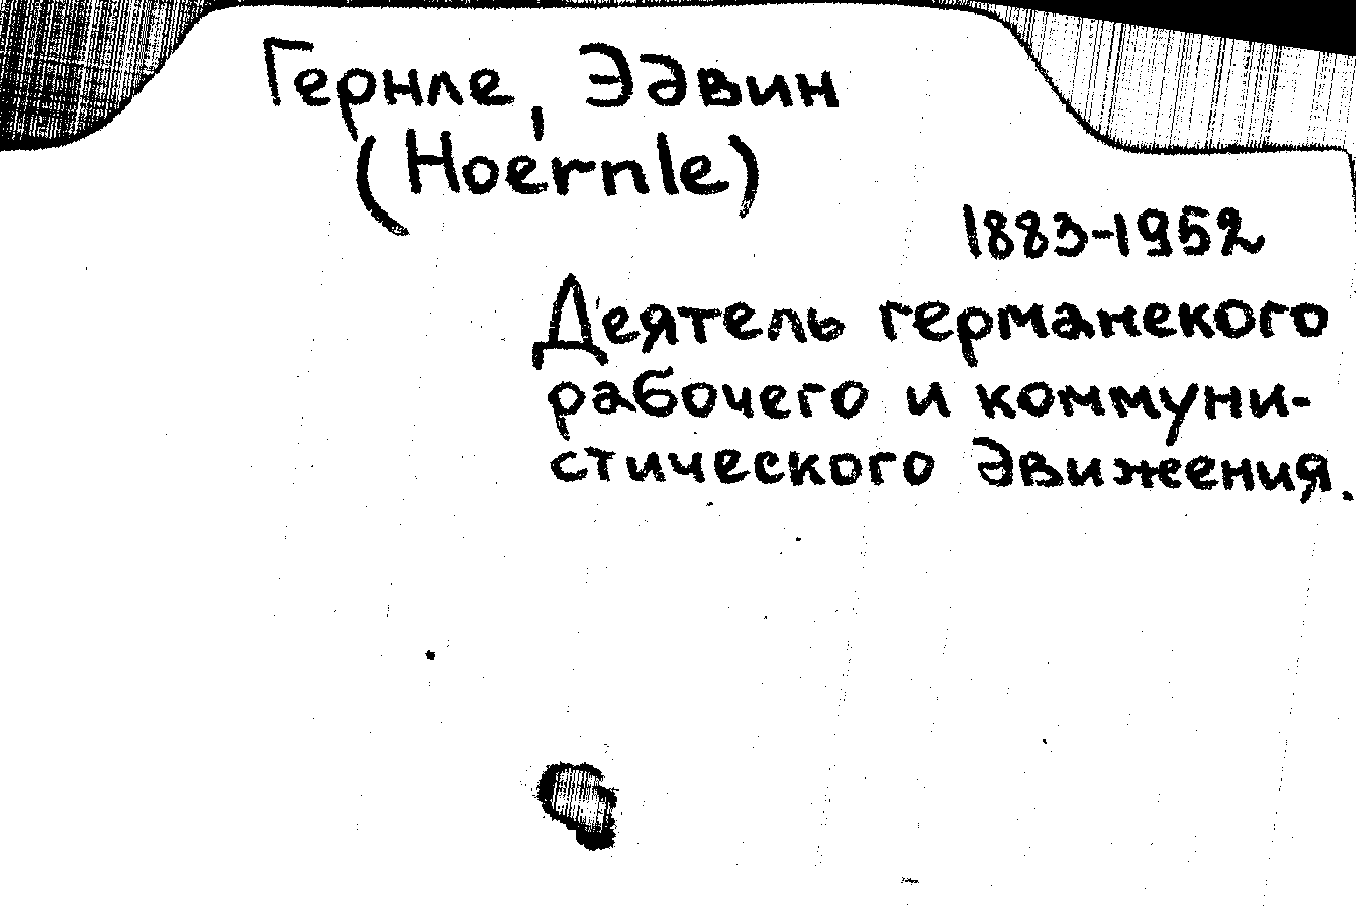 Гернле, Эдвин
(Hoernle)
1883-1952
Деятель германского
рабочего и коммуни-
стического движения.